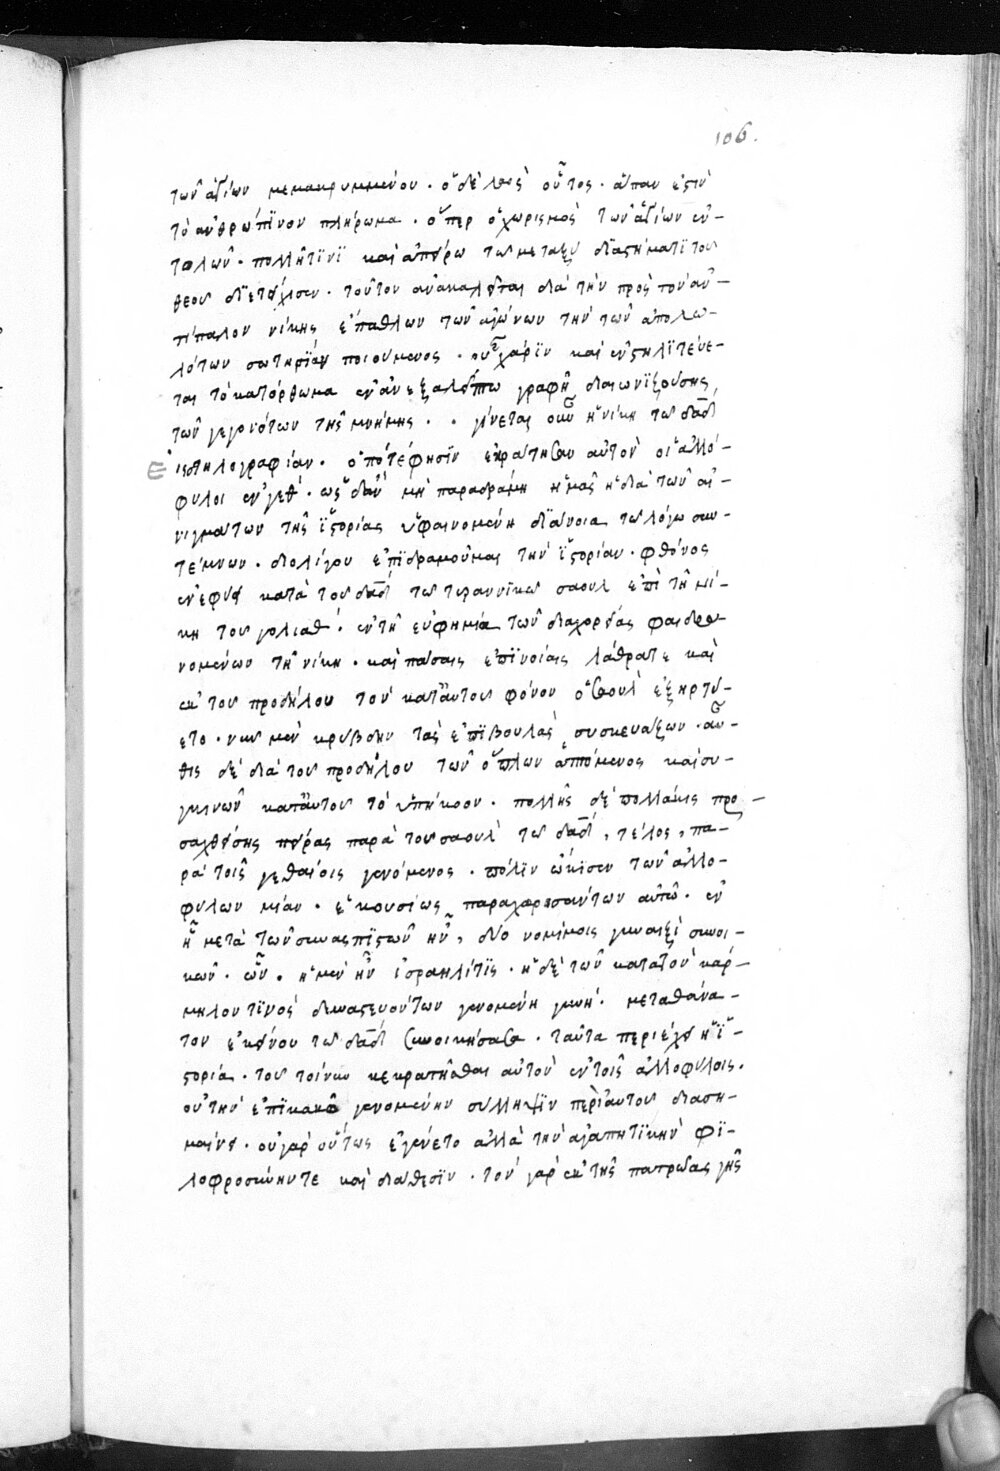 106.
τῶν ἁγίων μεμακρυμμένου· ὁ δὲ λαὸς οὗτος· ἅπαν ἐστὶ
τὸ ἀνθρώπινον πλήρωμα· ὅπερ ὁ χωρισμὸς τῶν ἁγίων ἐν-
τολῶν· πολλῆ τινι καὶ ἀπείρω τῶ μεταξὺ διαστήματι τοῦ
θεοῦ διετείχισεν· τοῦτον ἀνακαλεῖται διὰ τὴν πρὸς τὸν ἀν-
τίπαλον νίκης ἔπαθλων τῶν ἀγώνων τὴν τῶν ἀπολω-
λότων σωτηρίαν ποιούμενος· οὗ χάριν καὶ ἐνστηλιτεύε-
ται τὸ κατόρθωμα ἐν ἀνεξαλείπτω γραφῆ διαιωνιζούσης
τῶν γεγονότων τῆς μνήμης· γίνεται οὖν ἡ νίκη τῶ δαδ
εἰς στηλογραφίαν· ὁπότε φησὶν ἐκράτησαν αὐτὸν οἱ ἀλλό-
φυλοι ἐν γέθ· ὡς δ' ἂν μὴ παραδράμη ἡμᾶς ἡ διὰ τῶν αἰ-
νιγμάτων τῆς ἱστορίας ὑφαινομένη διάνοια τῶ λόγω συν-
τέμνων· δι ὀλίγου ἐπιδραμοῦμαι τὴν ἱστορίαν· φθόνος
ἐνέφυ κατὰ τοῦ δαδ τῶ τυραννικῶ σαοὺλ ἐπὶ τῆ νί-
κη τοῦ γολιαθ· ἐν τῆ εὐφημία τῶν διὰ χορείας φαιδρυ-
νομένων τῆ νίκη· καὶ πάσαις ἐπινοίαις λάθρα τε καὶ
ἐκ τοῦ προδήλου τὸν κατ αὐτοῦ φόνον ὁ σαοὺλ ἐξηρτύ-
ετο· νῦν μὲν κρύβδην τὰς ἐπιβουλὰς συσκευάζων· αὖ-
θις δὲ διὰ τοῦ προδήλου τῶν ὅπλων ἁπτόμενος καὶ συ-
γκινῶν κατ αὐτοῦ τὸ ὑπήκοον· πολλῆς δὲ πολλάκις προ-
σαχθείσης πείρας παρὰ τοῦ σαοὺλ τῶ δαδ, τέλος, πα-
ρὰ τοῖς γεθαίοις γενόμενος· πόλιν ὤκισεν τῶν ἀλλο-
φύλων μίαν· ἑκουσίως παραχωρησάντων αὐτῶ· ἐν
ἧ μετὰ τῶν συνασπιστῶν ἦν, δύο νομίμοις γυναιξὶ συνοι-
κῶν· ὧν· ἡ μὲν ἦν ἰσραηλίτις· ἡ δὲ τῶν κατὰ τὸν κάρ-
μηλον τινὸς δυναστευόντων γενομένη γυνή· μετὰ θάνα-
τον ἐκείνου τῶ δαδ συνοικήσασα· ταῦτα περιέχει ἡ ἱ-
στορία· τοῦ τοίνυν κεκρατῆσθαι αὐτὸν ἐν τοῖς ἀλλοφύλοις·
οὐ τὴν ἐπὶ κακῶ γενομένην σύλληψιν περὶ αὐτοῦ διαση-
μαίνει· οὐ γὰρ οὕτως ἐγένετο ἀλλὰ τὴν ἀγαπητικὴν φι-
λοφροσύνην τε καὶ διάθεσιν· τὸν γὰρ ἐκ τῆς πατρώας γῆς